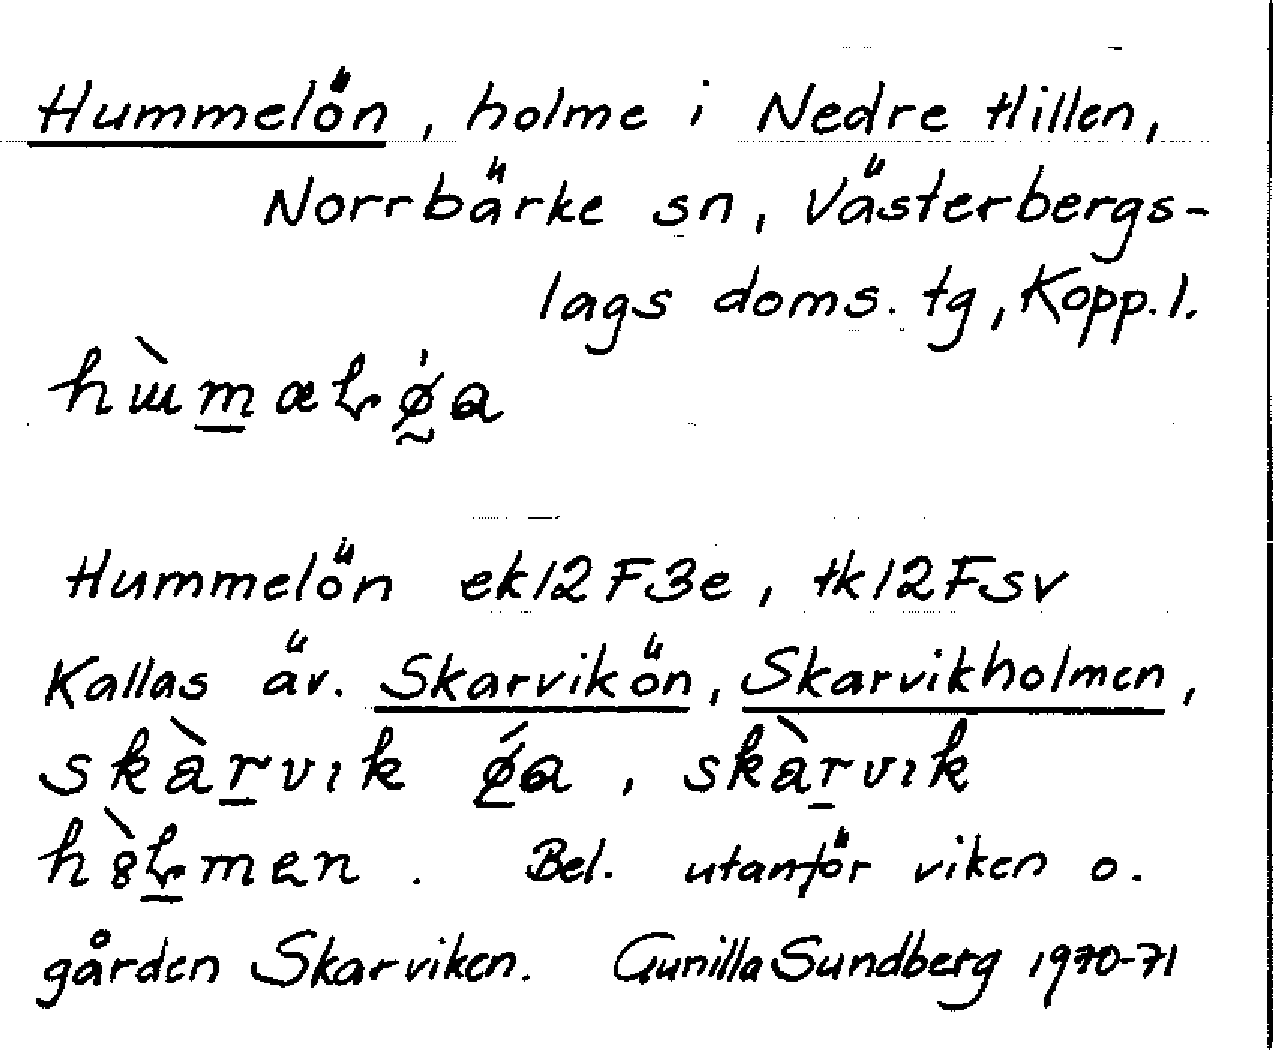 Hummelön, holme i Nedre Hillen,
Norrbärke sn, Västerbergs-
lags doms. tg, Kopp. l.
Hummelön ek12F3e, tk12Fsv
Kallas äv. Skarvikön, Skarvikholmen,
skàrvık øa, skàrvık
Bel. utanför viken o.
gården Skarviken. Gunilla Sundberg 1970-71